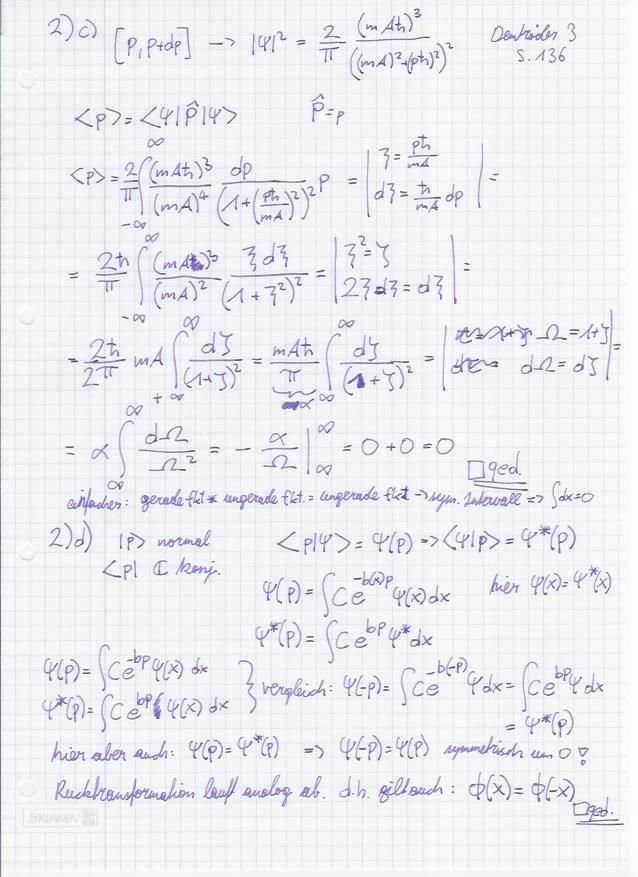 2)c) [p, p+dp] --> |Ψ|² = 2/π (mAħ)³/((mA)²+(pħ)²)²
S. 136
<p> = <Ψ|P̂|Ψ> P̂=p
<p> = 2/π ∫_{-∞}^{∞} (mAħ)³/(mA)⁴ dp/(1+(pħ/mA)²)² p = | ξ = pħ/mA dξ = ħ/mA dp | =
= 2ħ/π ∫_{-∞}^{∞} (mAħ)³/(mA)² ξdξ/(1+ξ²)² = | ξ² = ζ 2ξdξ = dζ | =
= 2ħ/2π mA ∫_{+∞}^{∞} dζ/(1+ζ)² = mAħ/π ∫_{∞}^{∞} dζ/(1+ζ)² = | Ω = 1+ζ dΩ = dζ | =
α
= α ∫_{∞}^{∞} dΩ/Ω² = - α/Ω |_{∞}^{∞} = 0 + 0 = 0 □ qed.
einfacher: gerade fkt * ungerade fkt. = ungerade fkt -> sym. Intervall => ∫dx=0
2)d) |p> normal <p|Ψ> = Ψ(p) -> <Ψ|p> = Ψ*(p)
<p| ℂ konj.
Ψ(p) = ∫Ce^{-b(x)p} Ψ(x)dx hier Ψ(x) = Ψ*(x)
Ψ*(p) = ∫Ce^{bp} Ψ* dx
Ψ(p) = ∫Ce^{-bp} Ψ(x) dx
Ψ*(p) = ∫Ce^{bp} Ψ(x) dx } vergleich: Ψ(-p) = ∫Ce^{-b(-p)} Ψdx = ∫Ce^{bp} Ψ dx
= Ψ*(p)
hier aber auch: Ψ(p) = Ψ*(p) => Ψ(-p) = Ψ(p) symmetrisch um 0 !
Rücktransformation läuft analog ab. d.h. gilt auch: ϕ(x) = ϕ(-x)
□ qed.
BRUNNEN